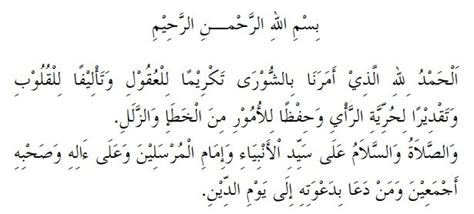 بِسْمِ اللهِ الرَّحْمـــنِ الرَّحِيْمِ
اَلْحَمْدُ لِله الَّذِيْ أَمَرَنَا بِالشُّوْرَى تَكْرِيْمًا لِلْعُقُوْلِ وَتَأْلِيْفًا لِلْقُلُوْبِ
وَتَقْدِيْرًا لِحُرِّيَّةِ الرَّأْيِ وَحِفْظًا لِلْأُمُوْرِ مِنَ الْخَطَإِ وَالزَّلَلِ.
وَالصَّلَاةُ وَالسَّلَامُ عَلَى سَيِّدِ الْأَنْبِيَاءِ وَإِمَامِ الْمُرْسَلِيْنَ وَعَلَى ءَالِهِ وَصَحْبِهِ
أَجْمَعِيْنَ وَمَنْ دَعَا بِدَعْوَتِهِ إِلَى يَوْمِ الدِّيْنِ.